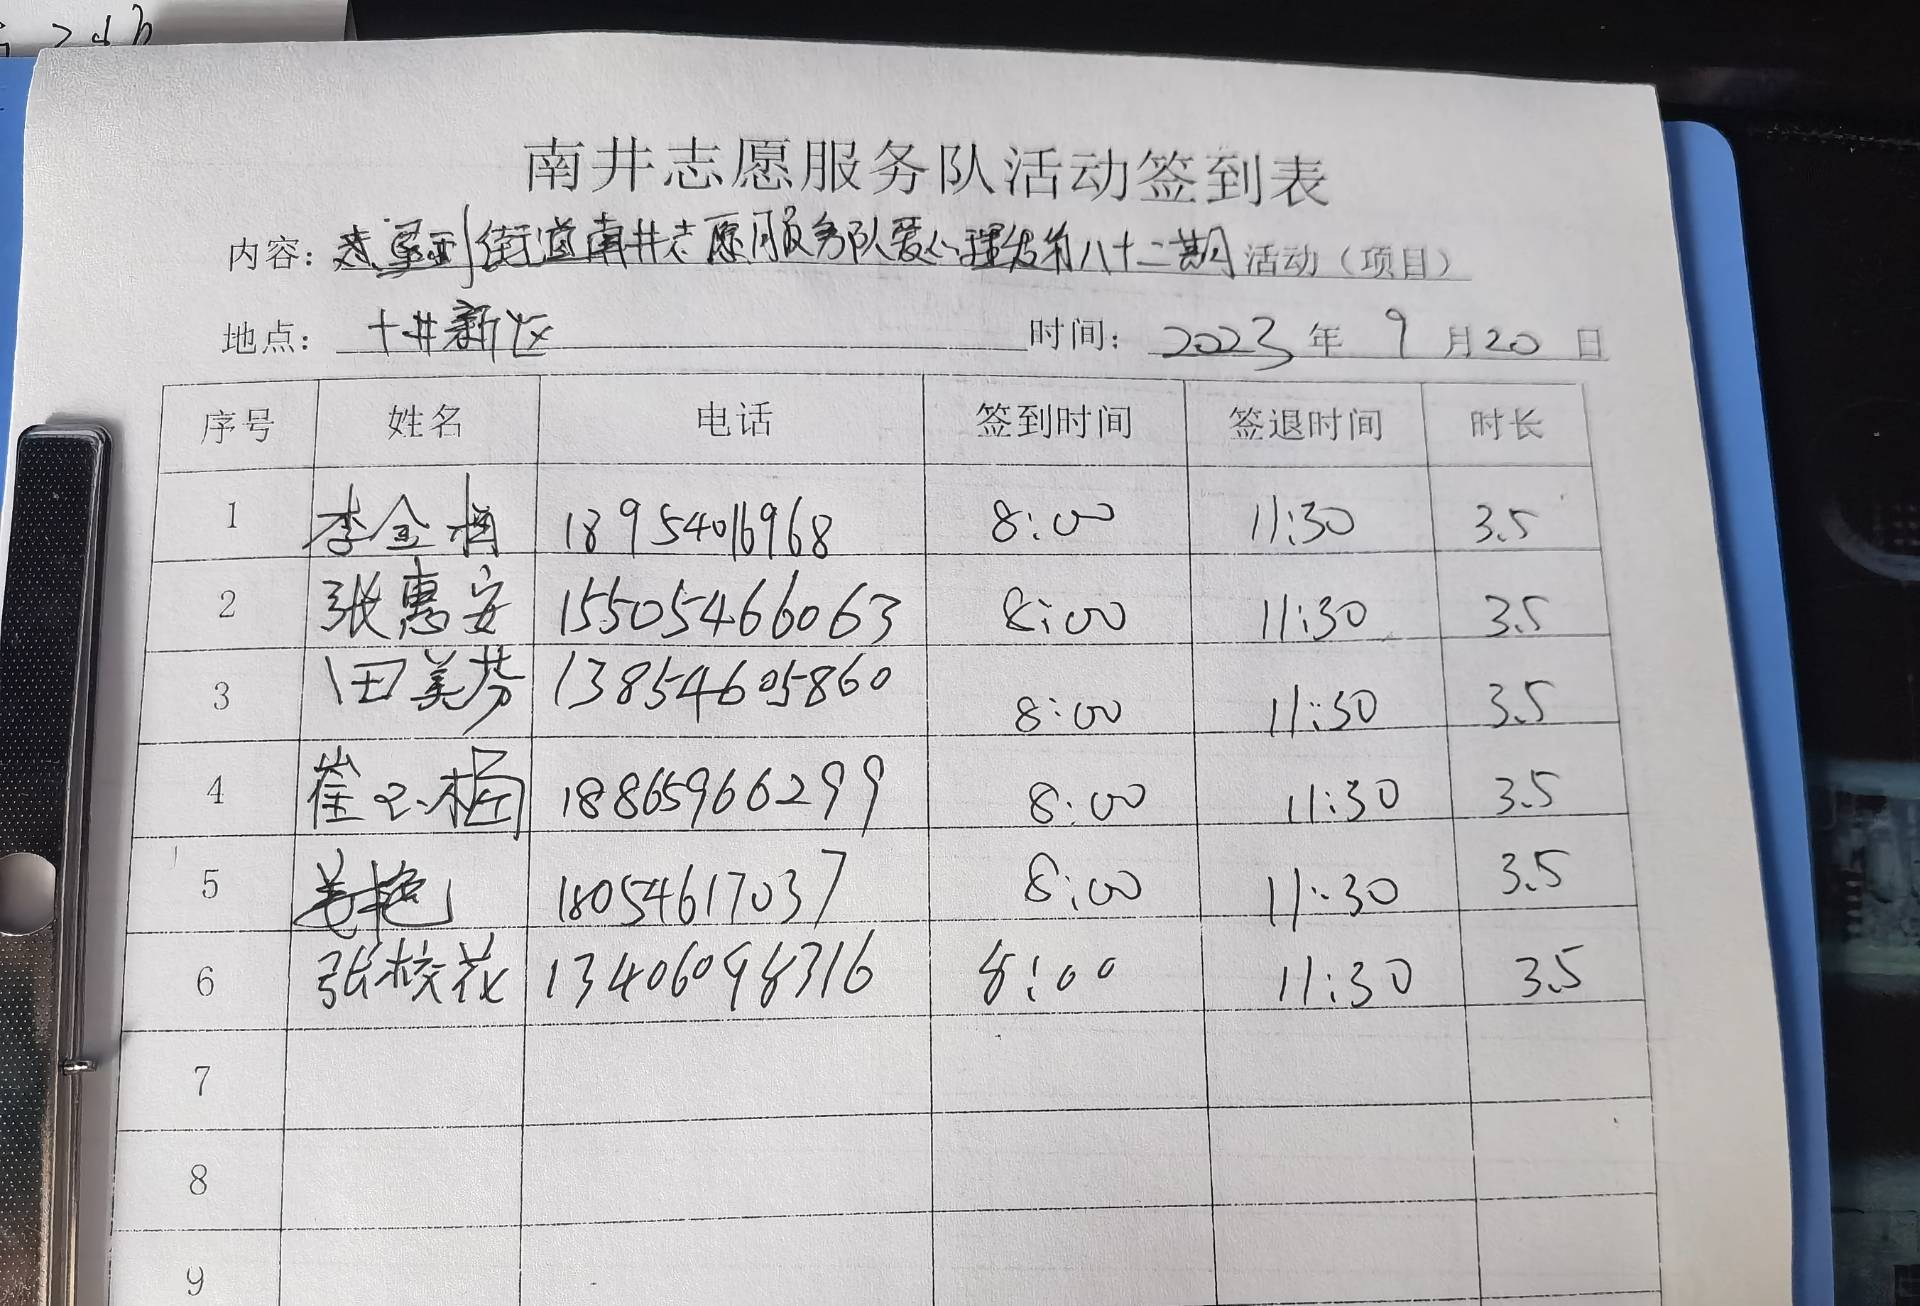 南井志愿服务队活动签到表
内容：街道南井志愿服务队爱心理发第八十二期活动（项目）
地点：十井新区 时间：2023年9月20日
序号 姓名 电话 签到时间 签退时间 时长
1 李金梅 18954016968 8:00 11:30 3.5
2 张惠安 15505466063 8:00 11:30 3.5
3 田美芬 13854605860 8:00 11:30 3.5
4 崔 18865966299 8:00 11:30 3.5
5 18054617037 8:00 11:30 3.5
6 张校花 13406098316 8:00 11:30 3.5
7
8
9